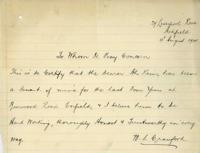 Liverpool Road
Ashfield
August
To Whom It May Concern
This is to Certify that the bearer Mr has been
a tenant of mine for the last four Years at
Road Enfield, & I believe him to be
Hard Working, thoroughly Honest & Trustworthy in every
way.
W. L. Crawford